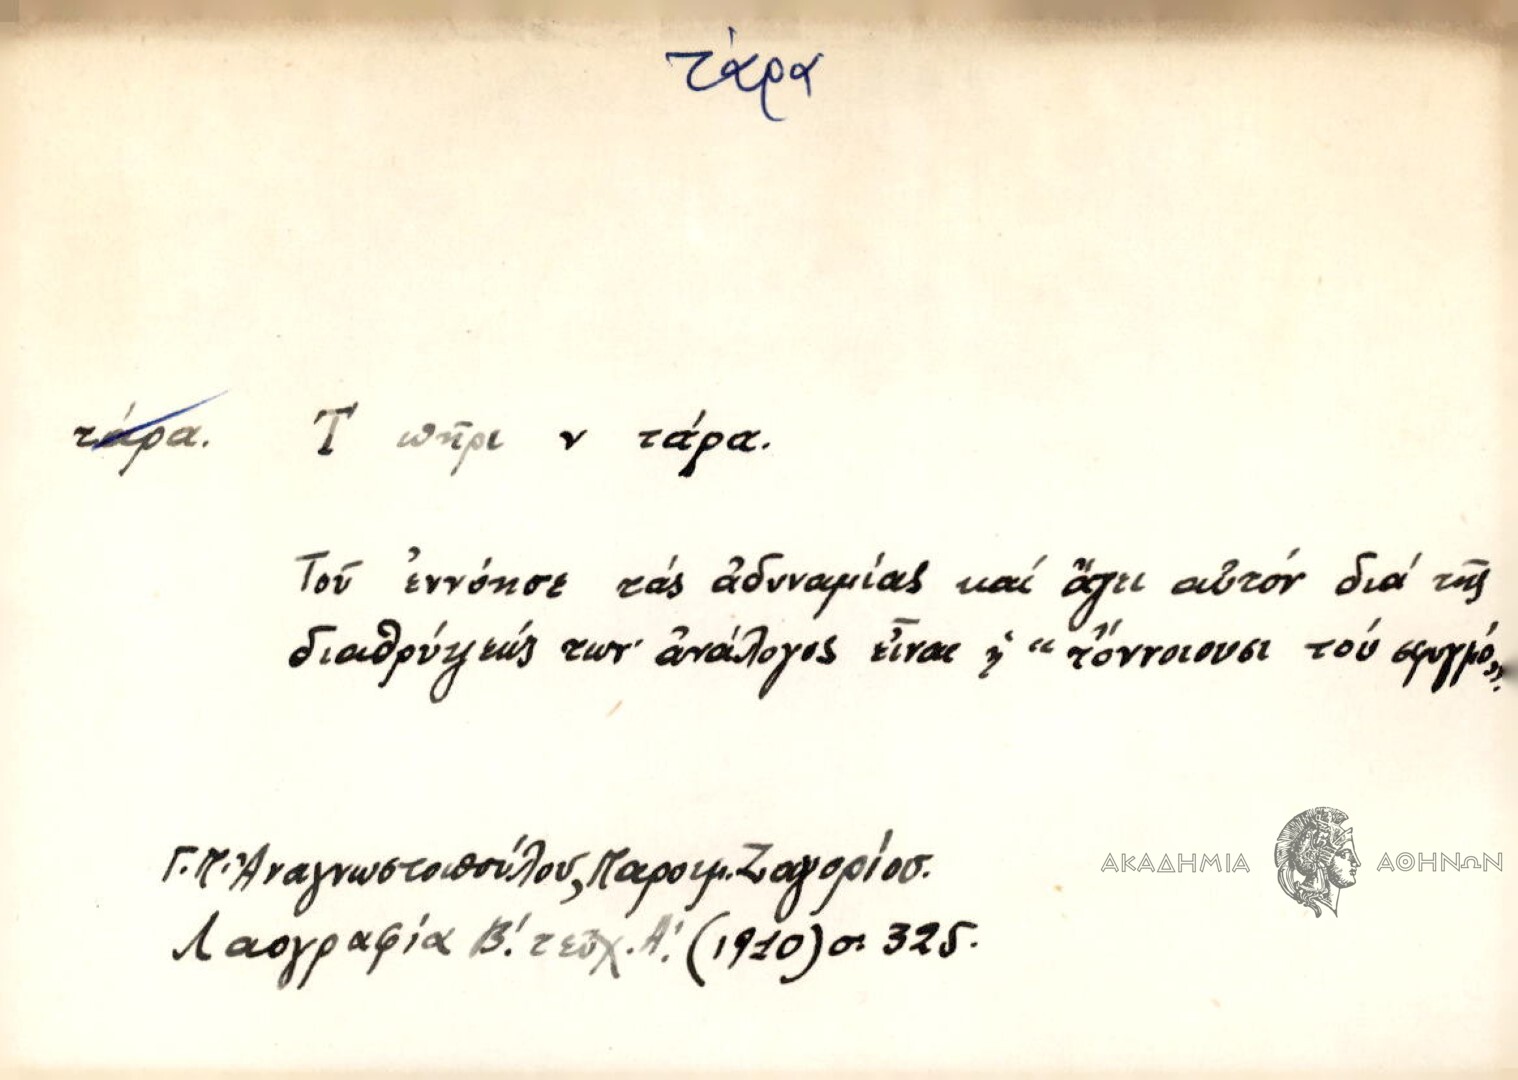 τάρα
τάρα. Τ' πῆρι ν τάρα.
Τοῦ ἐννόησε τάς ἀδυναμίας καί ἄγει αὐτόν διά τῆς
διαθρύψεώς των· ἀνάλογος εἶναι ἡ "τὄννοιουσι τού σφυγμό„.
Γ.Π. Ἀναγνωστοπούλου, Παροιμ. Ζαγορίου.
Λαογραφία Β΄. τεῦχ. Α΄. (1910) σ. 325.
ΑΚΑΔΗΜΙΑ ΑΘΗΝΩΝ